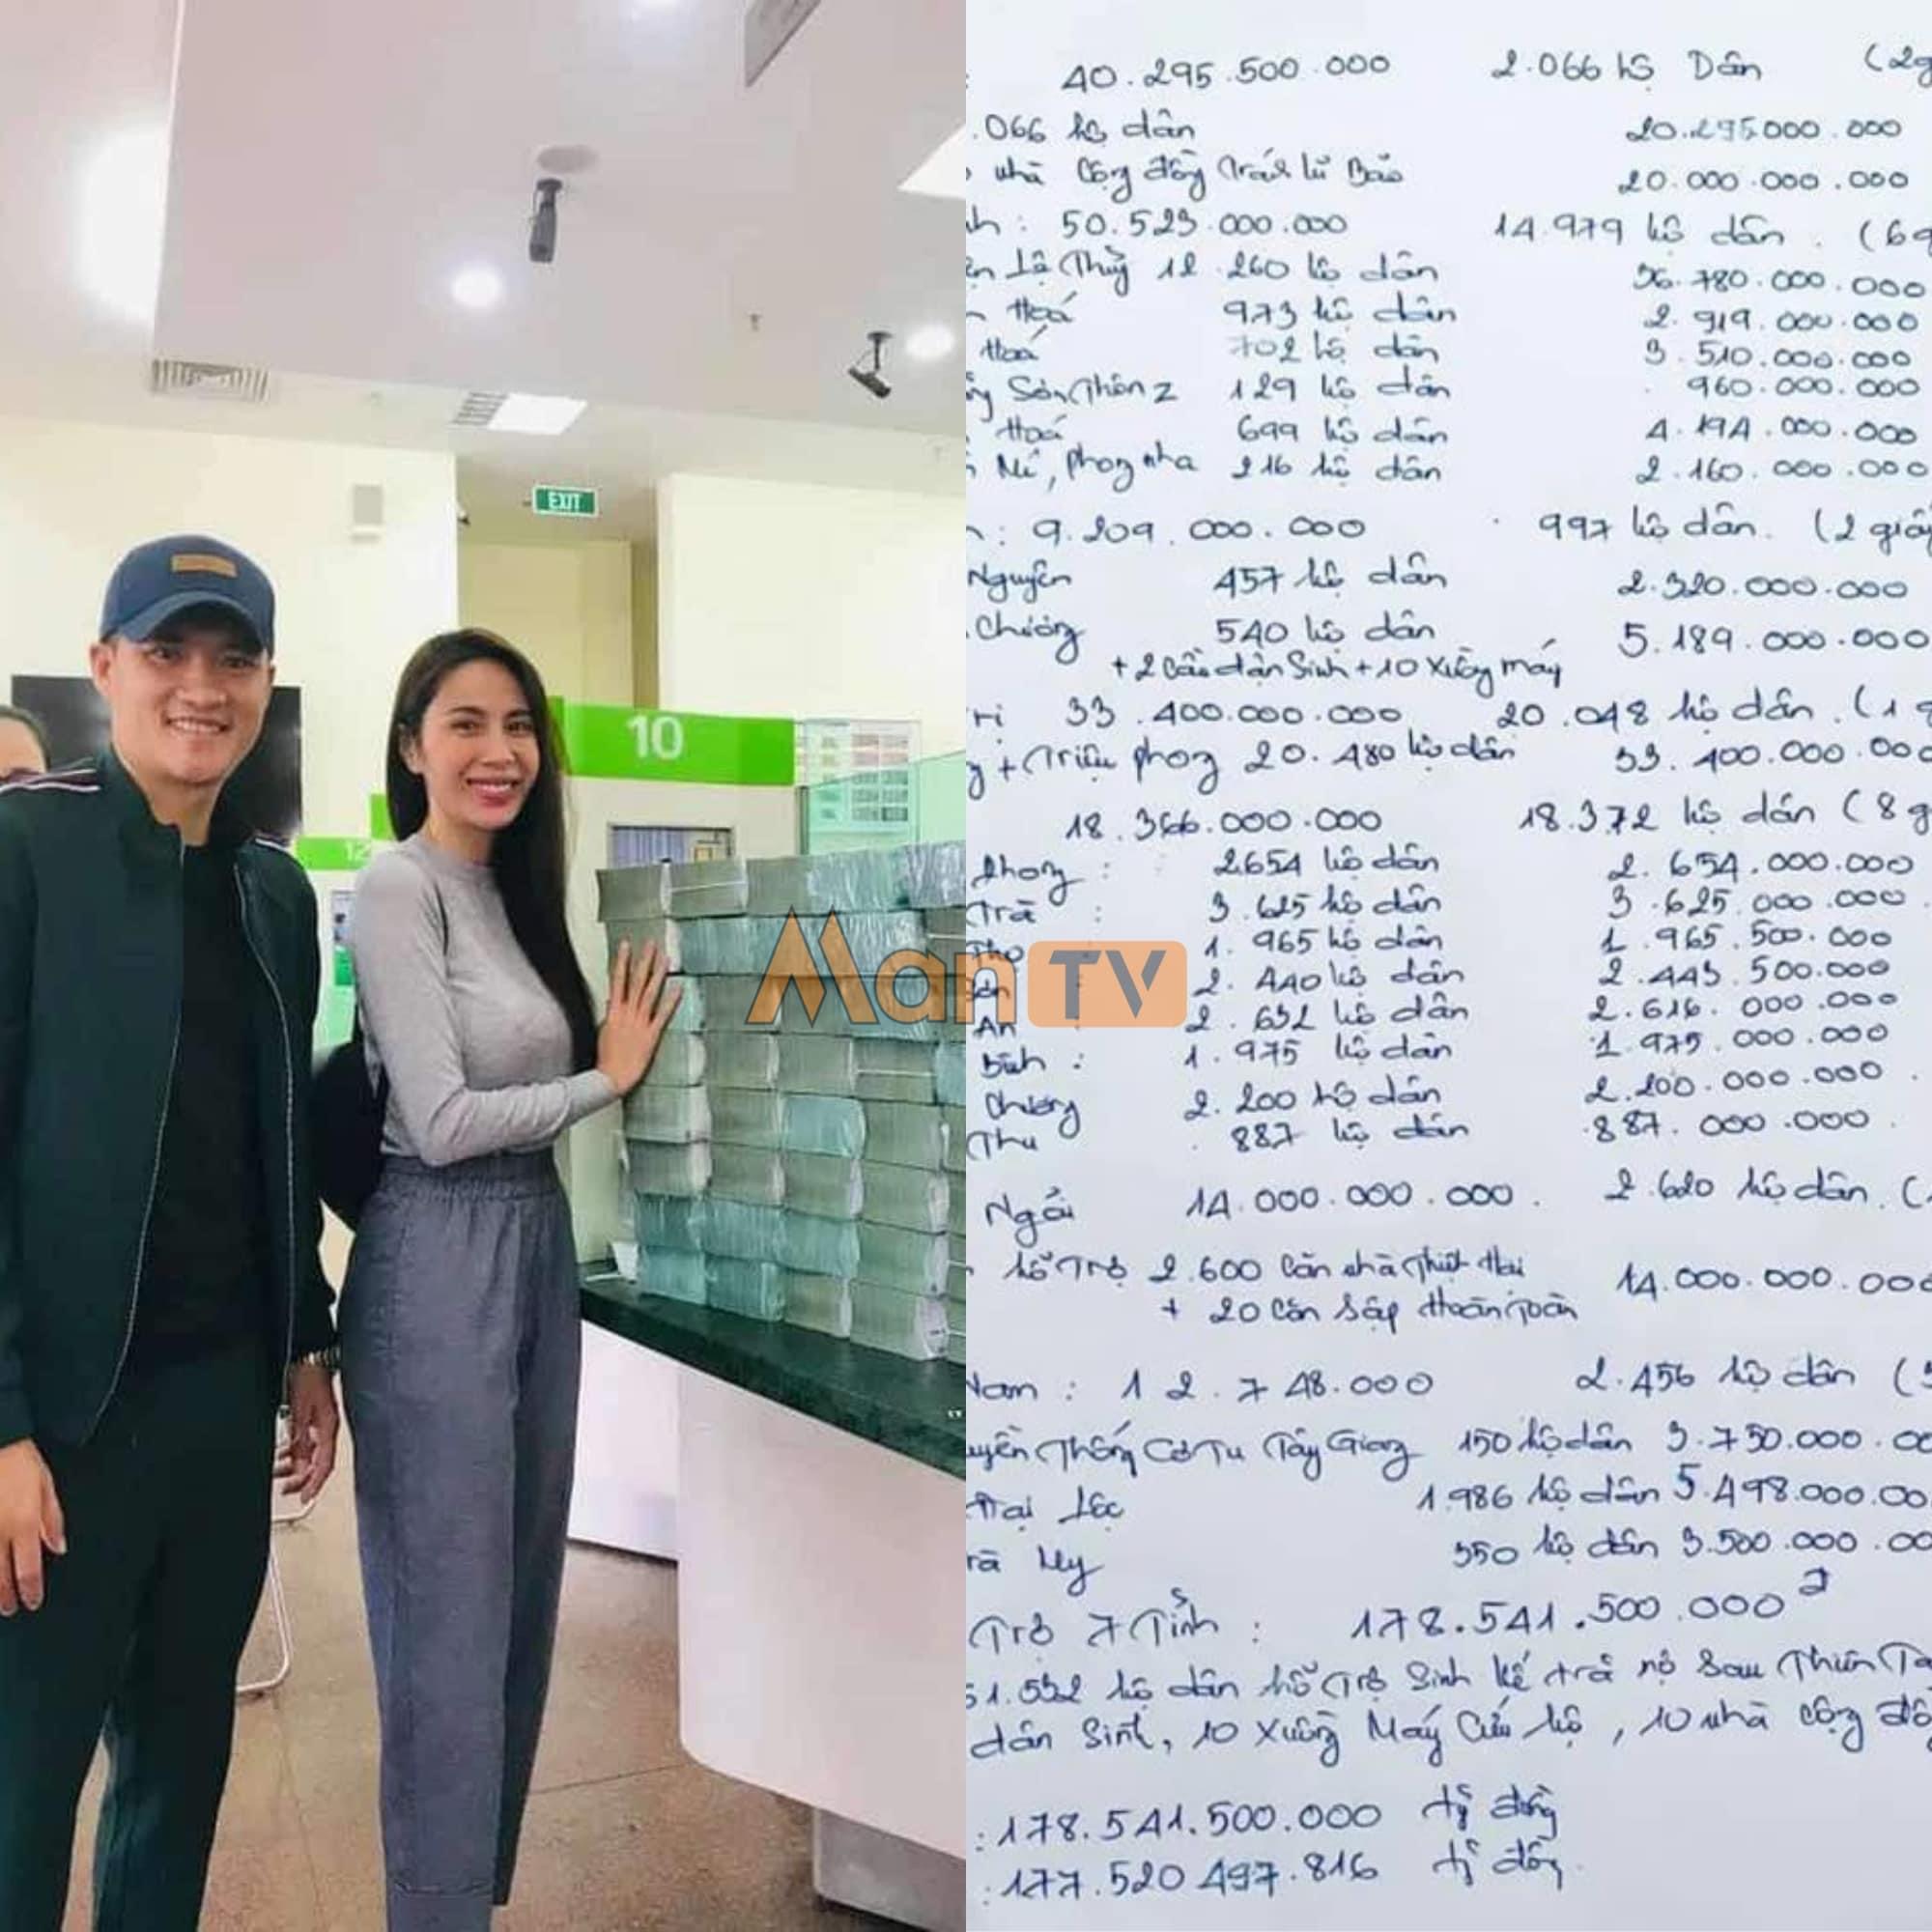 EXIT
10
12
Man TV
40.295.500.000 2.066 hộ Dân (2g
.066 hộ dân 20.295.000.000
nhà Cộng đồng tránh lũ Bão 20.000.000.000
nh: 50.523.000.000 14.979 hộ dân. (6g
ện Lệ Thủy 12.260 hộ dân 36.780.000.000
Hoá 973 hộ dân 2.919.000.000
Hoá 702 hộ dân 3.510.000.000
Sơn Thôn 2 129 hộ dân 960.000.000
Hoá 699 hộ dân 4.194.000.000
Phong nha 216 hộ dân 2.160.000.000
: 9.209.000.000 997 hộ dân. (2 giấy
Nguyên 457 hộ dân 2.320.000.000
Chương 540 hộ dân 5.189.000.000
+ 2 Cầu dân Sinh + 10 Xuồng máy
rị 33.400.000.000 20.048 hộ dân. (1 g
g + Triệu phong 20.480 hộ dân 33.400.000.000
18.366.000.000 18.372 hộ dân (8 g
Phong : 2654 hộ dân 2.654.000.000
Trà : 3.625 hộ dân 3.625.000.000
Thọ : 1.965 hộ dân 1.965.500.000
: 2.440 hộ dân 2.443.500.000
An : 2.632 hộ dân 2.616.000.000
Bình : 1.975 hộ dân 1.975.000.000
Chương 2.200 hộ dân 2.200.000.000
Thu 887 hộ dân 887.000.000
Ngãi 14.000.000.000. 2.620 hộ dân. (
hỗ Trợ 2.600 Căn nhà Thiệt Hại 14.000.000.00
+ 20 Căn Sập Hoàn Toàn
Nam : 12.748.000 2.456 hộ dân (3
uyền Thống Cơ Tu Tây Giang 150 hộ dân 3.750.000.00
Đại Lộc 1.986 hộ dân 5.498.000.00
rà My 350 hộ dân 3.500.000.00
Trợ 7 Tỉnh : 178.541.500.000 đ
51.532 hộ dân hỗ Trợ Sinh kế trả nợ Sau Thiên Ta
dân Sinh, 10 Xuồng Máy Cứu hộ, 10 nhà cộng đồ
: 178.541.500.000 tỷ đồng
: 177.520.497.816 tỷ đồng.